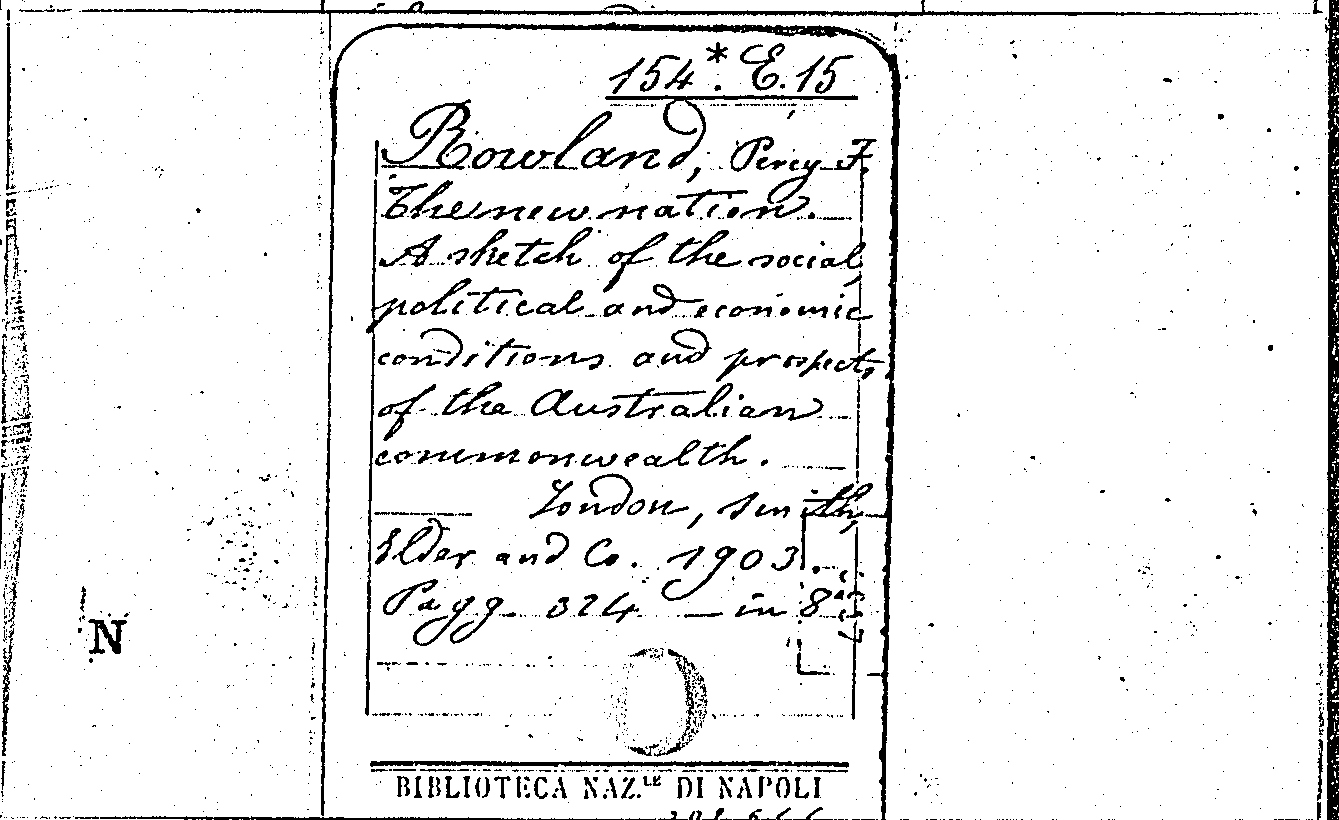 154*. E. 15
Rowland, Percy F.
The new nation.
A sketch of the social,
political and economic
conditions and prospects
of the Australian
commonwealth.
London, Smith,
Elder and Co. 1903.
Pagg. 324 — in 8º
N
BIBLIOTECA NAZ.LE DI NAPOLI